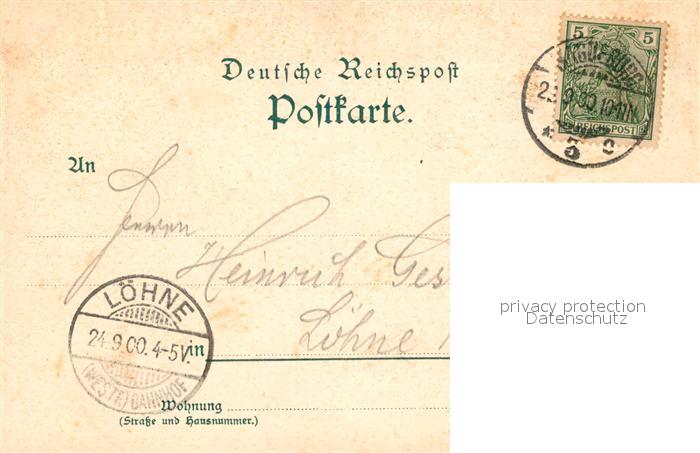 Deutsche Reichspost
Postkarte.
5 5
REICHSPOST
An
Herrn
Heinrich Ges
Löhne
in
LÖHNE
24.9.00.4-5V.
(WESTF.) BAHNHOF
Wohnung
(Straße und Hausnummer.)
privacy protection
Datenschutz